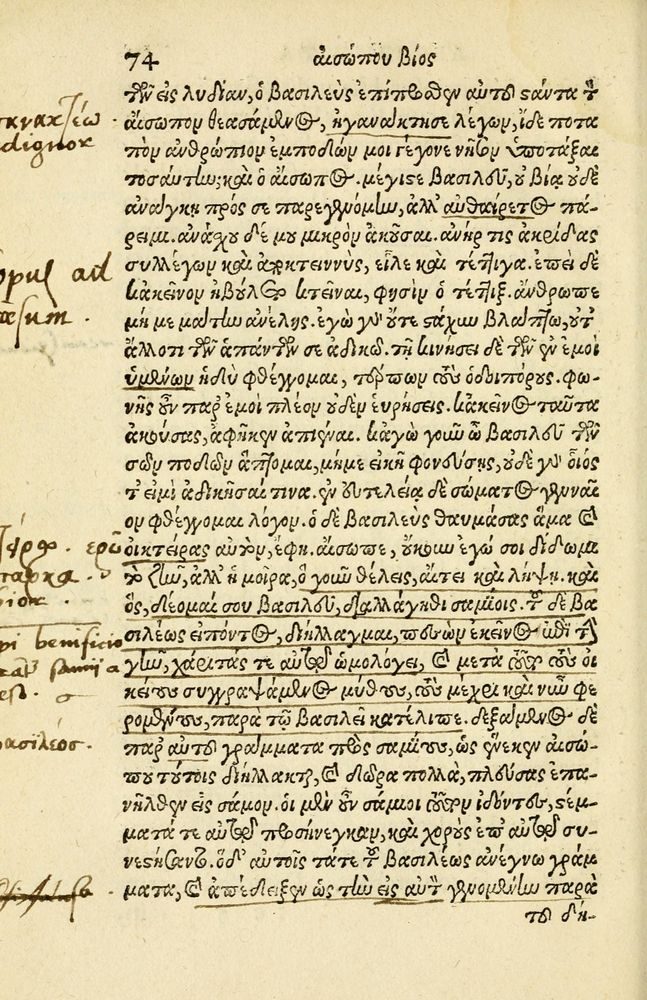 74 αἰσώπου βίος
τῶν εἰς λυδίαν, ὁ βασιλεὺς ἐπίπροσθεν αὐτοῦ στάντα τὸν
αἴσωπον θεασάμενος, ἠγανάκτησε λέγων, ἴδε ποτα
πὸν ἀνθρώπιον ἐμποδών μοι γέγονε νῆσον ὑποτάξαι
τοσαύτην; καὶ ὁ αἴσωπος. μέγιστε βασιλεῦ, οὐ βίᾳ οὐδὲ
ἀνάγκῃ πρός σε παρεγενόμην, ἀλλ' αὐθαίρετος πά-
ρειμι. ἀνάσχου δέ μου μικρὸν ἀκοῦσαι. ἀνήρ τις ἀκρίδας
συλλέγων καὶ ἀποκτεννὺς, εἷλε καὶ τέττιγα. ἐπεὶ δὲ
κἀκεῖνον ἠβούλετο κτεῖναι, φησὶν ὁ τέττιξ. ἄνθρωπε
μή με μάτην ἀνέλῃς. ἐγὼ γὰρ οὔτε στάχυν βλάπτω, οὔτ'
ἄλλό τι τῶν ἁπάντων σε ἀδικῶ. τῇ κινήσει δὲ τῶν ἐν ἐμοὶ
ὑμένων ἡδὺ φθέγγομαι, τέρπων τοὺς ὁδοιπόρους. φω-
νῆς οὖν παρ' ἐμοὶ πλέον οὐδὲν εὑρήσεις. κἀκεῖνος ταῦτα
ἀκούσας, ἀφῆκεν ἀπιέναι. κἀγὼ γοῦν ὦ βασιλεῦ τῶν
σῶν ποδῶν ἅπτομαι, μή με εἰκῆ φονεύσῃς, οὐδὲ γὰρ οἷός
τ' εἰμὶ ἀδικῆσαί τινα. ἐν εὐτελείᾳ δὲ σώματος γενναῖ
ον φθέγγομαι λόγον. ὁ δὲ βασιλεὺς θαυμάσας ἅμα καὶ
οἰκτείρας αὐτὸν, ἔφη. αἴσωπε, οὐκ ἐγώ σοι δίδωμι
τὸ ζῆν, ἀλλ' ἡ μοῖρα, ὃ γοῦν θέλεις, αἴτει καὶ λήψῃ. καὶ
ὃς, δέομαί σου βασιλεῦ, διαλλάγηθι σαμίοις. τοῦ δὲ βα
σιλέως εἰπόντος, διήλλαγμαι, πεσὼν ἐκεῖνος ἐπὶ τὴν
γῆν, χάριτάς τε αὐτῷ ὡμολόγει, καὶ μετὰ ταῦτα τοὺς οἰ
κείους συγγραψάμενος μύθους, τοὺς μέχρι καὶ νῦν φε
ρομένους, παρὰ τῷ βασιλεῖ κατέλιπε. δεξάμενος δὲ
παρ' αὐτοῦ γράμματα πρὸς σαμίους, ὡς ἕνεκεν αἰσώ-
που τούτοις διήλλακται, καὶ δῶρα πολλὰ, πλεύσας ἐπα-
νῆλθεν εἰς σάμον. οἱ μὲν οὖν σάμιοι τοῦτον ἰδόντες, στέμ-
ματά τε αὐτῷ προσήνεγκαν, καὶ χοροὺς ἐπ' αὐτῷ συ-
νεστήσαντο. ὁ δ' αὐτοῖς τά τε τοῦ βασιλέως ἀνέγνω γράμ
ματα, καὶ ἀπέδειξεν ὡς τὴν εἰς αὐτὸν γενομένην παρὰ
τοῦ δή-
dignor
ad
ερῶ
benificio
βασιλέος.